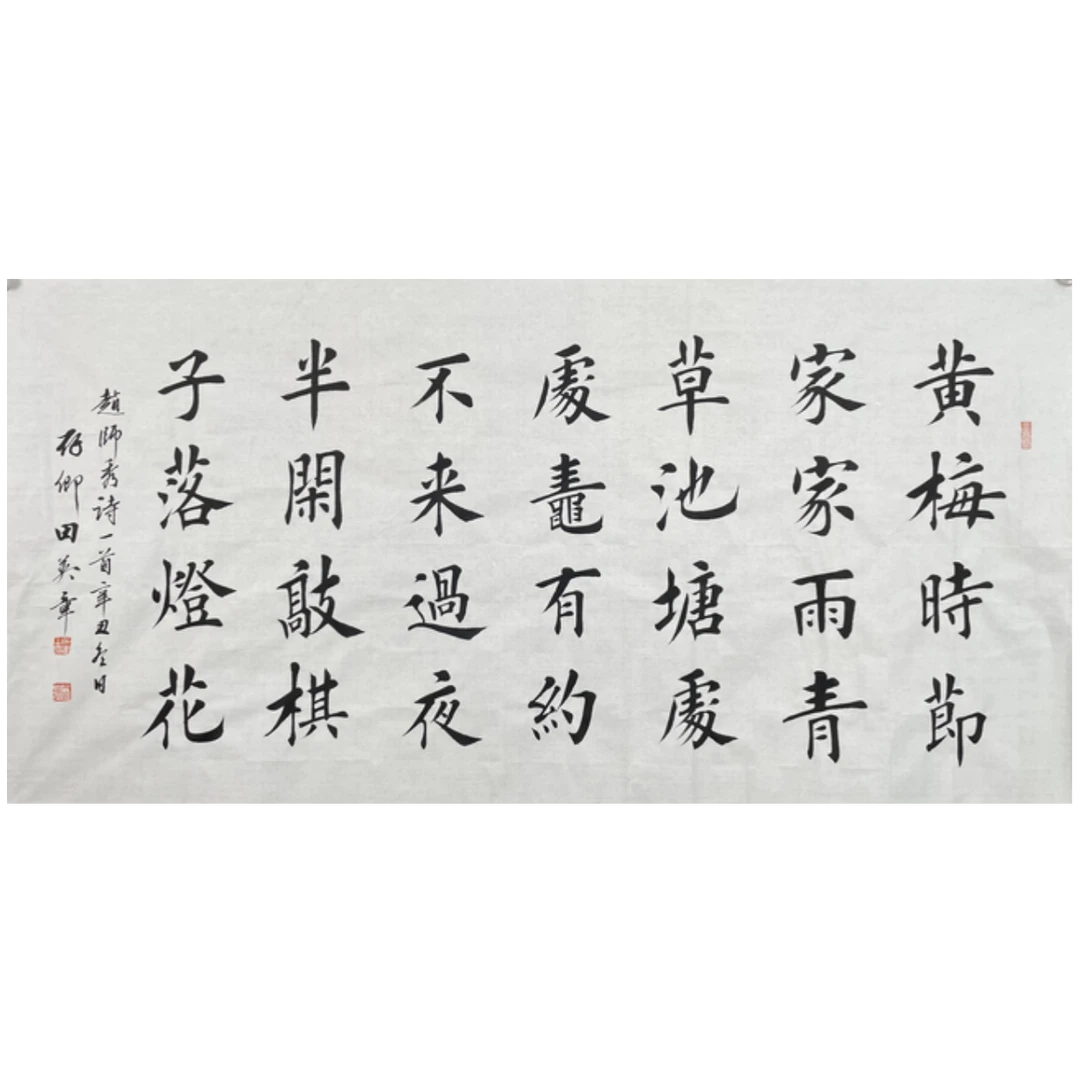 黄梅時節
家家雨青
草池塘處
處鼃有約
不来過夜
半閑敲棋
子落燈花
趙師秀詩一首辛丑冬日
存卿田英章